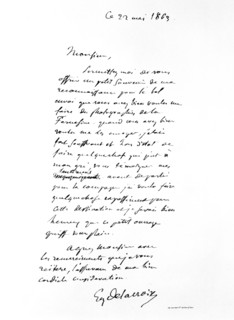 Ce 22 mai 1863
Monsieur,
Permettez moi de vous
offrir un petit souvenir de ma
reconnaissance pour le bel
envoi que vous avez bien voulu me
faire de photographies de la
Farnésine quand vous avez bien
voulu me les envoyer j'étais
fort souffrant et hors d'état de
faire quelque chose qui put
que vous témoigner mes
avant de partir
pour la campagne je voulu faire
quelque chose
cette destination et je serais bien
heureux que ce petit ouvrage
Agréez Monsieur avec
les remerciements que je vous
réitère, l'assurance de ma bien
cordiale considération
Eug Delacroix